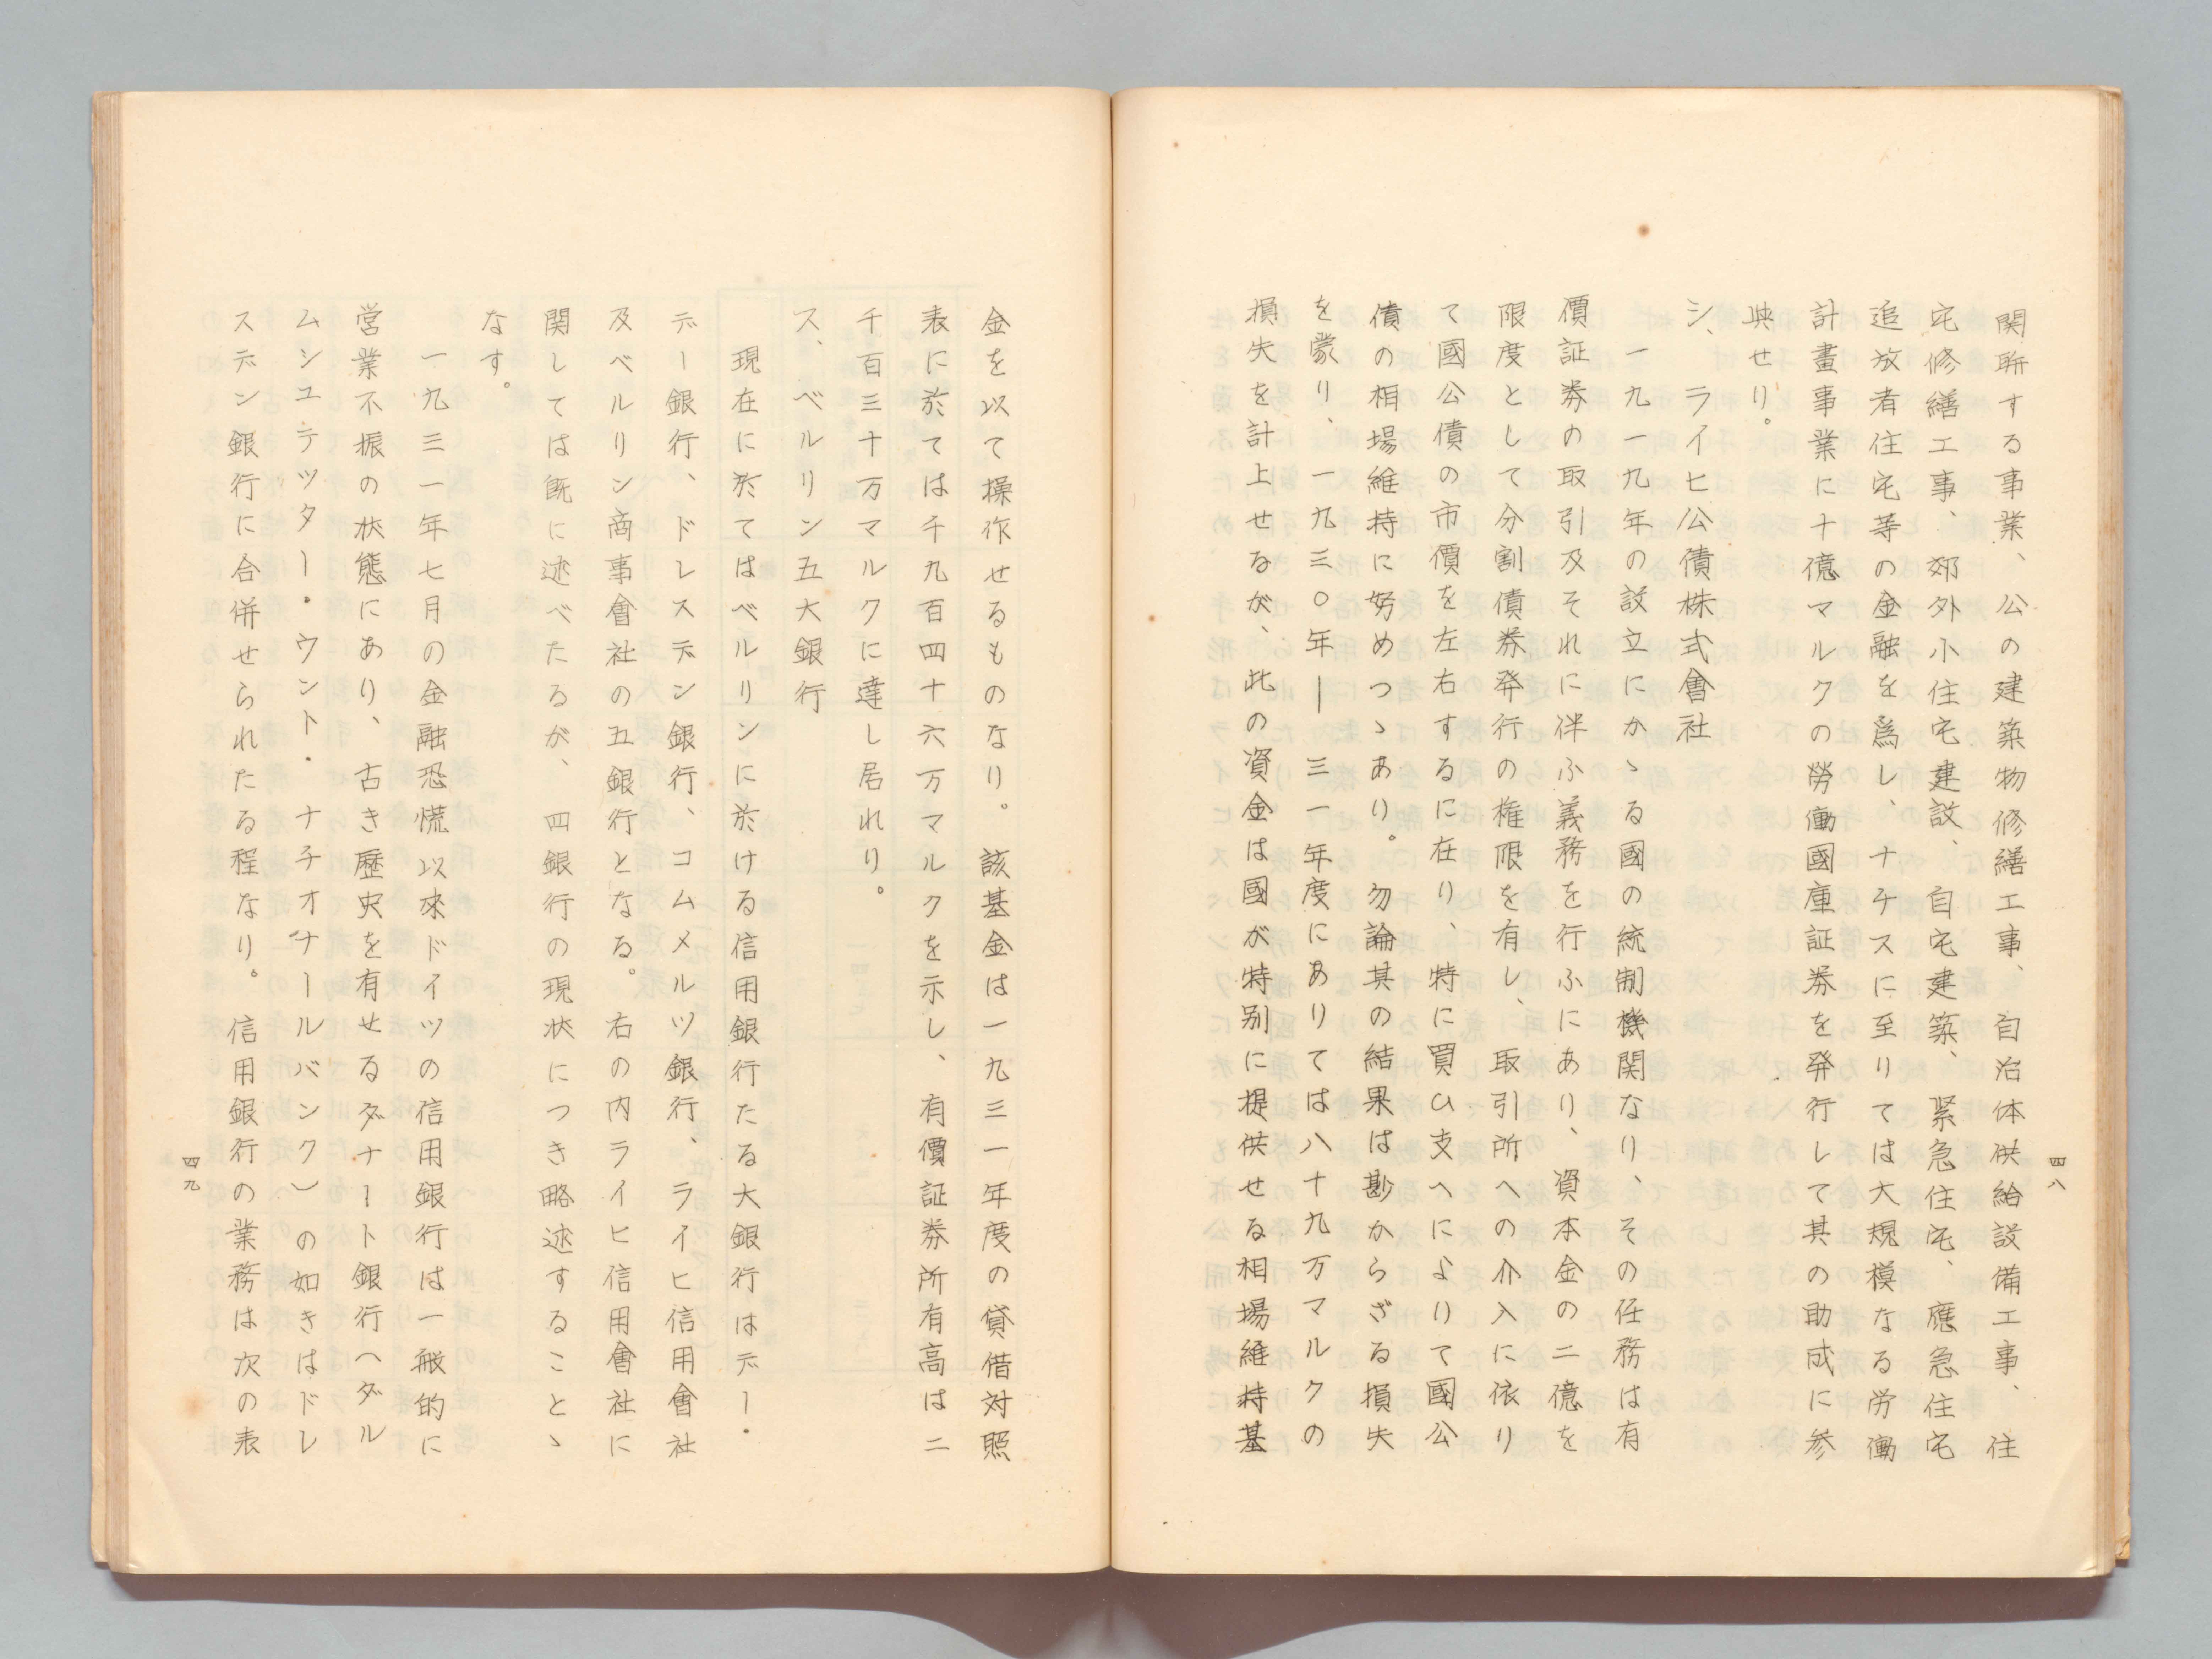 関聨する事業、公の建築物修繕工事、自治体供給設備工事、住
宅修繕工事、郊外小住宅建設、自宅建築、緊急住宅、應急住宅
追放者住宅等の金融を爲し、ナチスに至りては大規模なる労働
計畫事業に十億マルクの勞働國庫証券を発行して其の助成に参
與せり。
シ、ライヒ公債株式會社
一九一九年の設立にかゝる國の統制機関なり、その任務は有
價証券の取引及それに伴ふ義務を行ふにあり、資本金の二億を
限度として分割債券発行の権限を有し、取引所への介入に依り
て國公債の市價を左右するに在り、特に買ひ支へによりて國公
債の相場維持に努めつゝあり。勿論其の結果は尠からざる損失
を蒙り、一九三〇年―三一年度にありては八十九万マルクの
損失を計上せるが、此の資金は國が特別に提供せる相場維持基
四八
金を以て操作せるものなり。該基金は一九三一年度の貸借対照
表に於ては千九百四十六万マルクを示し、有價証券所有高は二
千百三十万マルクに達し居れり。
ス、ベルリン五大銀行
現在に於てはベルリンに於ける信用銀行たる大銀行はデー・
デー銀行、ドレスデン銀行、コムメルツ銀行、ライヒ信用會社
及ベルリン商事會社の五銀行となる。右の内ライヒ信用會社に
関しては既に述べたるが、四銀行の現状につき略述することゝ
なす。
一九三一年七月の金融恐慌以來ドイツの信用銀行は一般的に
営業不振の状態にあり、古き歴史を有せるダナート銀行（ダル
ムシユテツター・ウント・ナチオナールバンク）の如きはドレ
スデン銀行に合併せられたる程なり。信用銀行の業務は次の表
四九